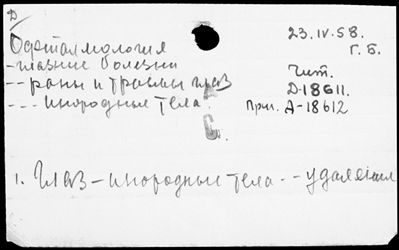 Д
Офтальмология
- глазные болезни
-- раны и травмы глаз
--- инородные тела.
23.IV.58.
Г. Б.
Чит.
Д-18611.
При. Д-18612
1. Глаз - инородные тела -- удаления